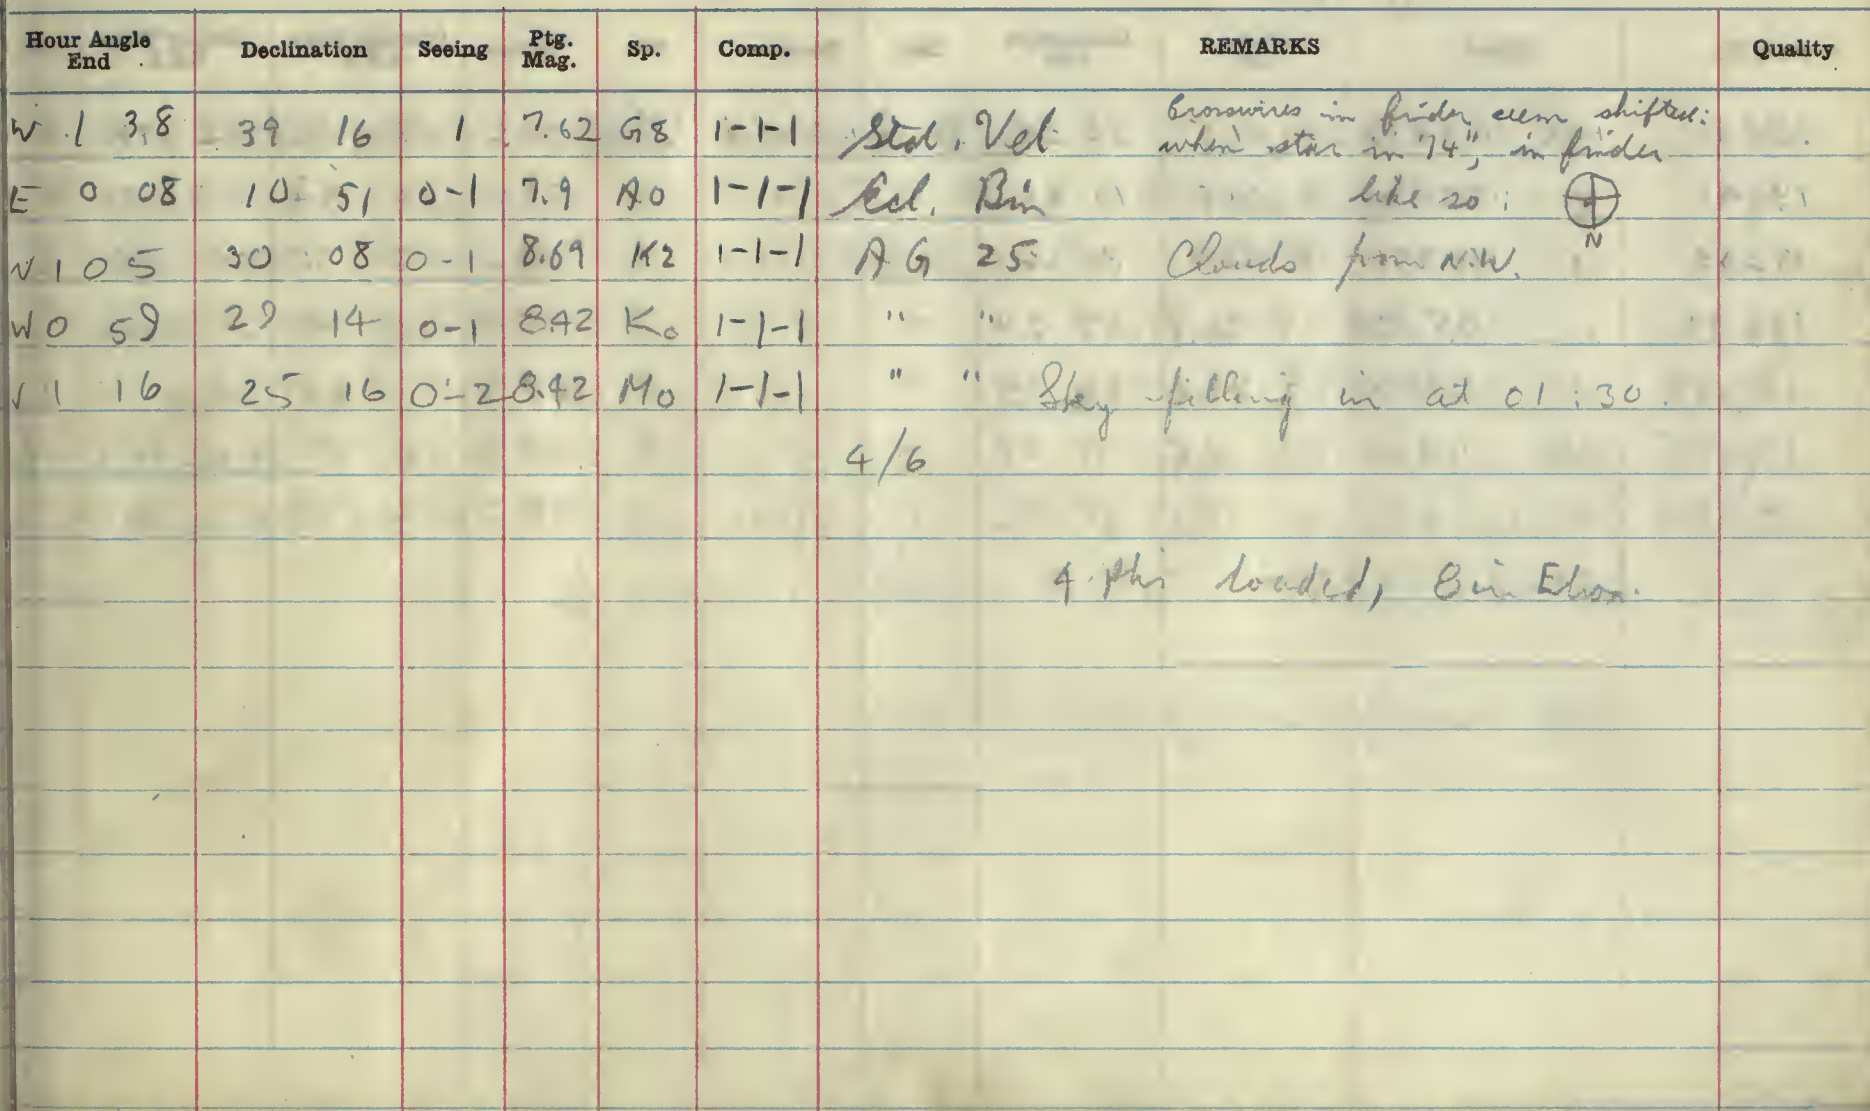 Hour Angle End Declination Seeing Ptg. Mag. Sp. Comp. REMARKS Quality
W 1 38 39 16 1 7.62 G8 1-1-1 Std. Vel Crosswires in finder seem shifted:
when star in 74", in finder
E 0 08 10 51 0-1 7.9 A0 1-1-1 Ecl. Bin like so:
N
W 1 05 30 08 0-1 8.69 K2 1-1-1 AG 25 Clouds from N.W.
W 0 59 29 14 0-1 8.42 K0 1-1-1 " "
W 1 16 25 16 0-2 8.42 M0 1-1-1 " " Sky filling in at 01:30.
4/6
4 loaded,